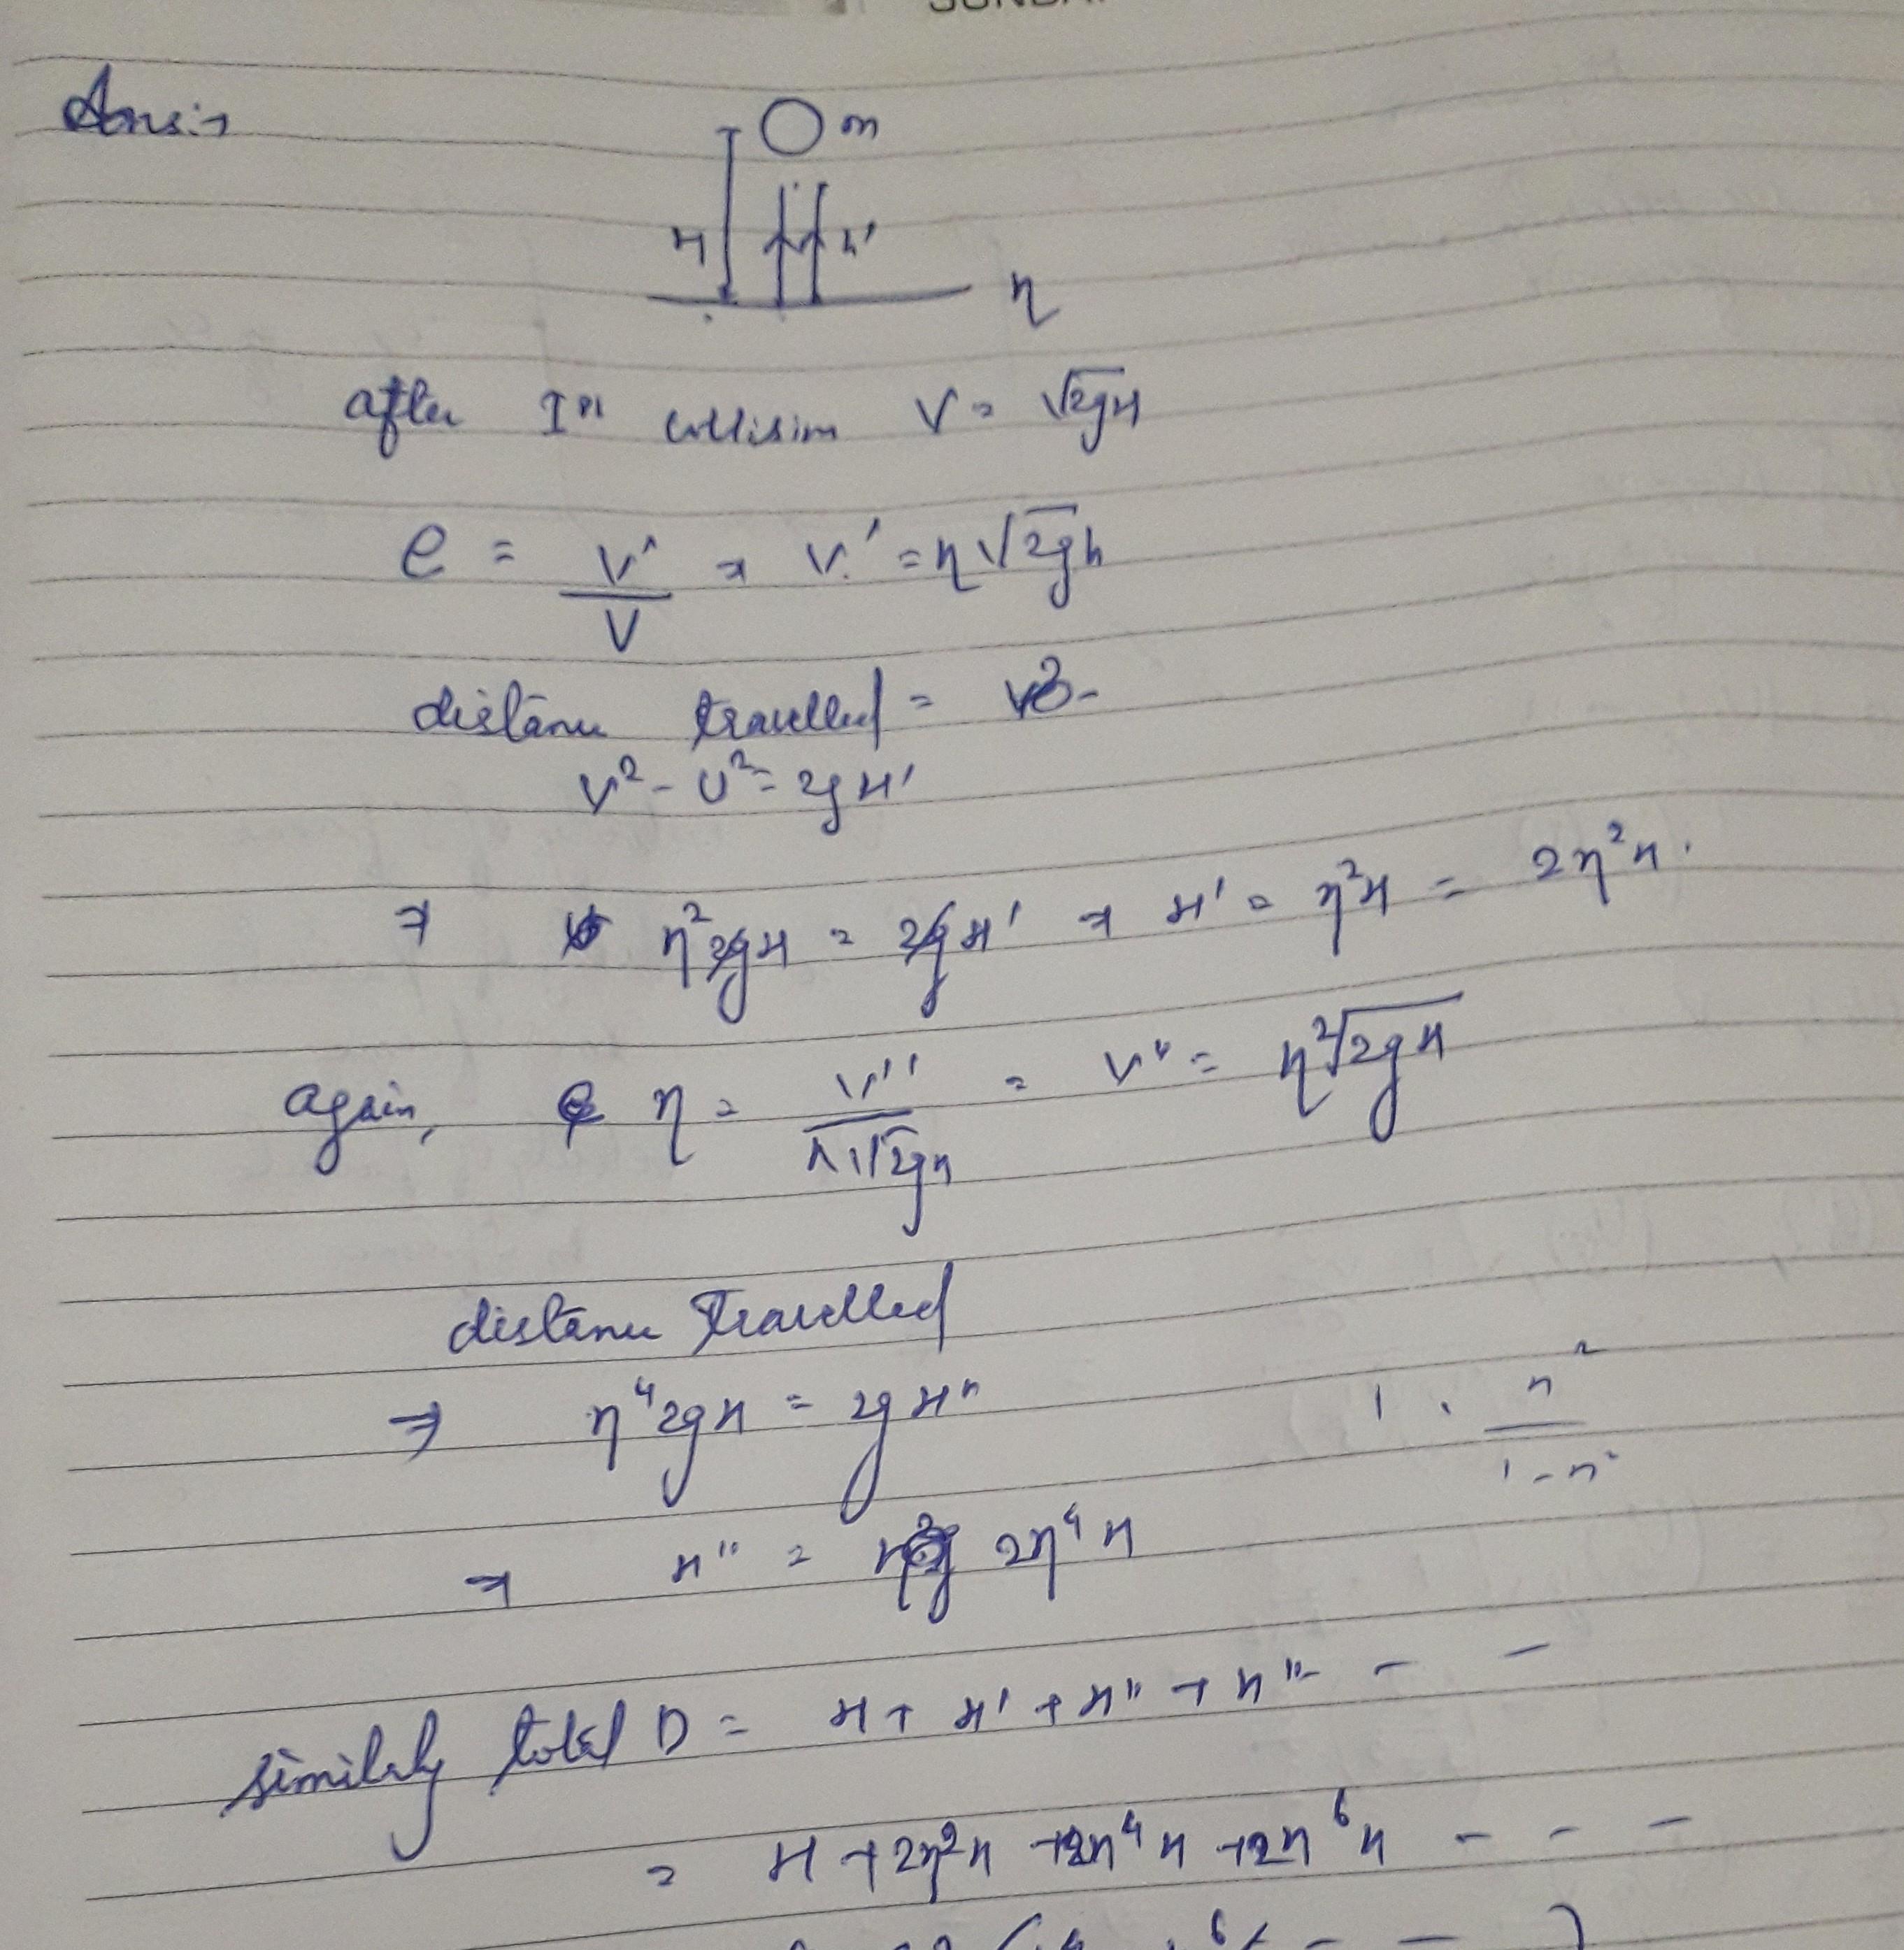 Ans:→
m
H h'
η
after Ist collision V = √2gH
e = V'/V ⇒ V' = η√2gh
distance travelled =
V² - U² = 2gH'
⇒ η²2gH = 2gH' ⇒ H' = η²H = 2η²H.
again, η = V''/η√2gH = V'' = η²√2gH
distance travelled
⇒ η⁴2gH = 2gH''
1 . η²/1-η²
⇒ H'' = 2η⁴H
similarly total D = H + H' + H'' + H''' - -
= H + 2η²H + 2η⁴H + 2η⁶H - - -